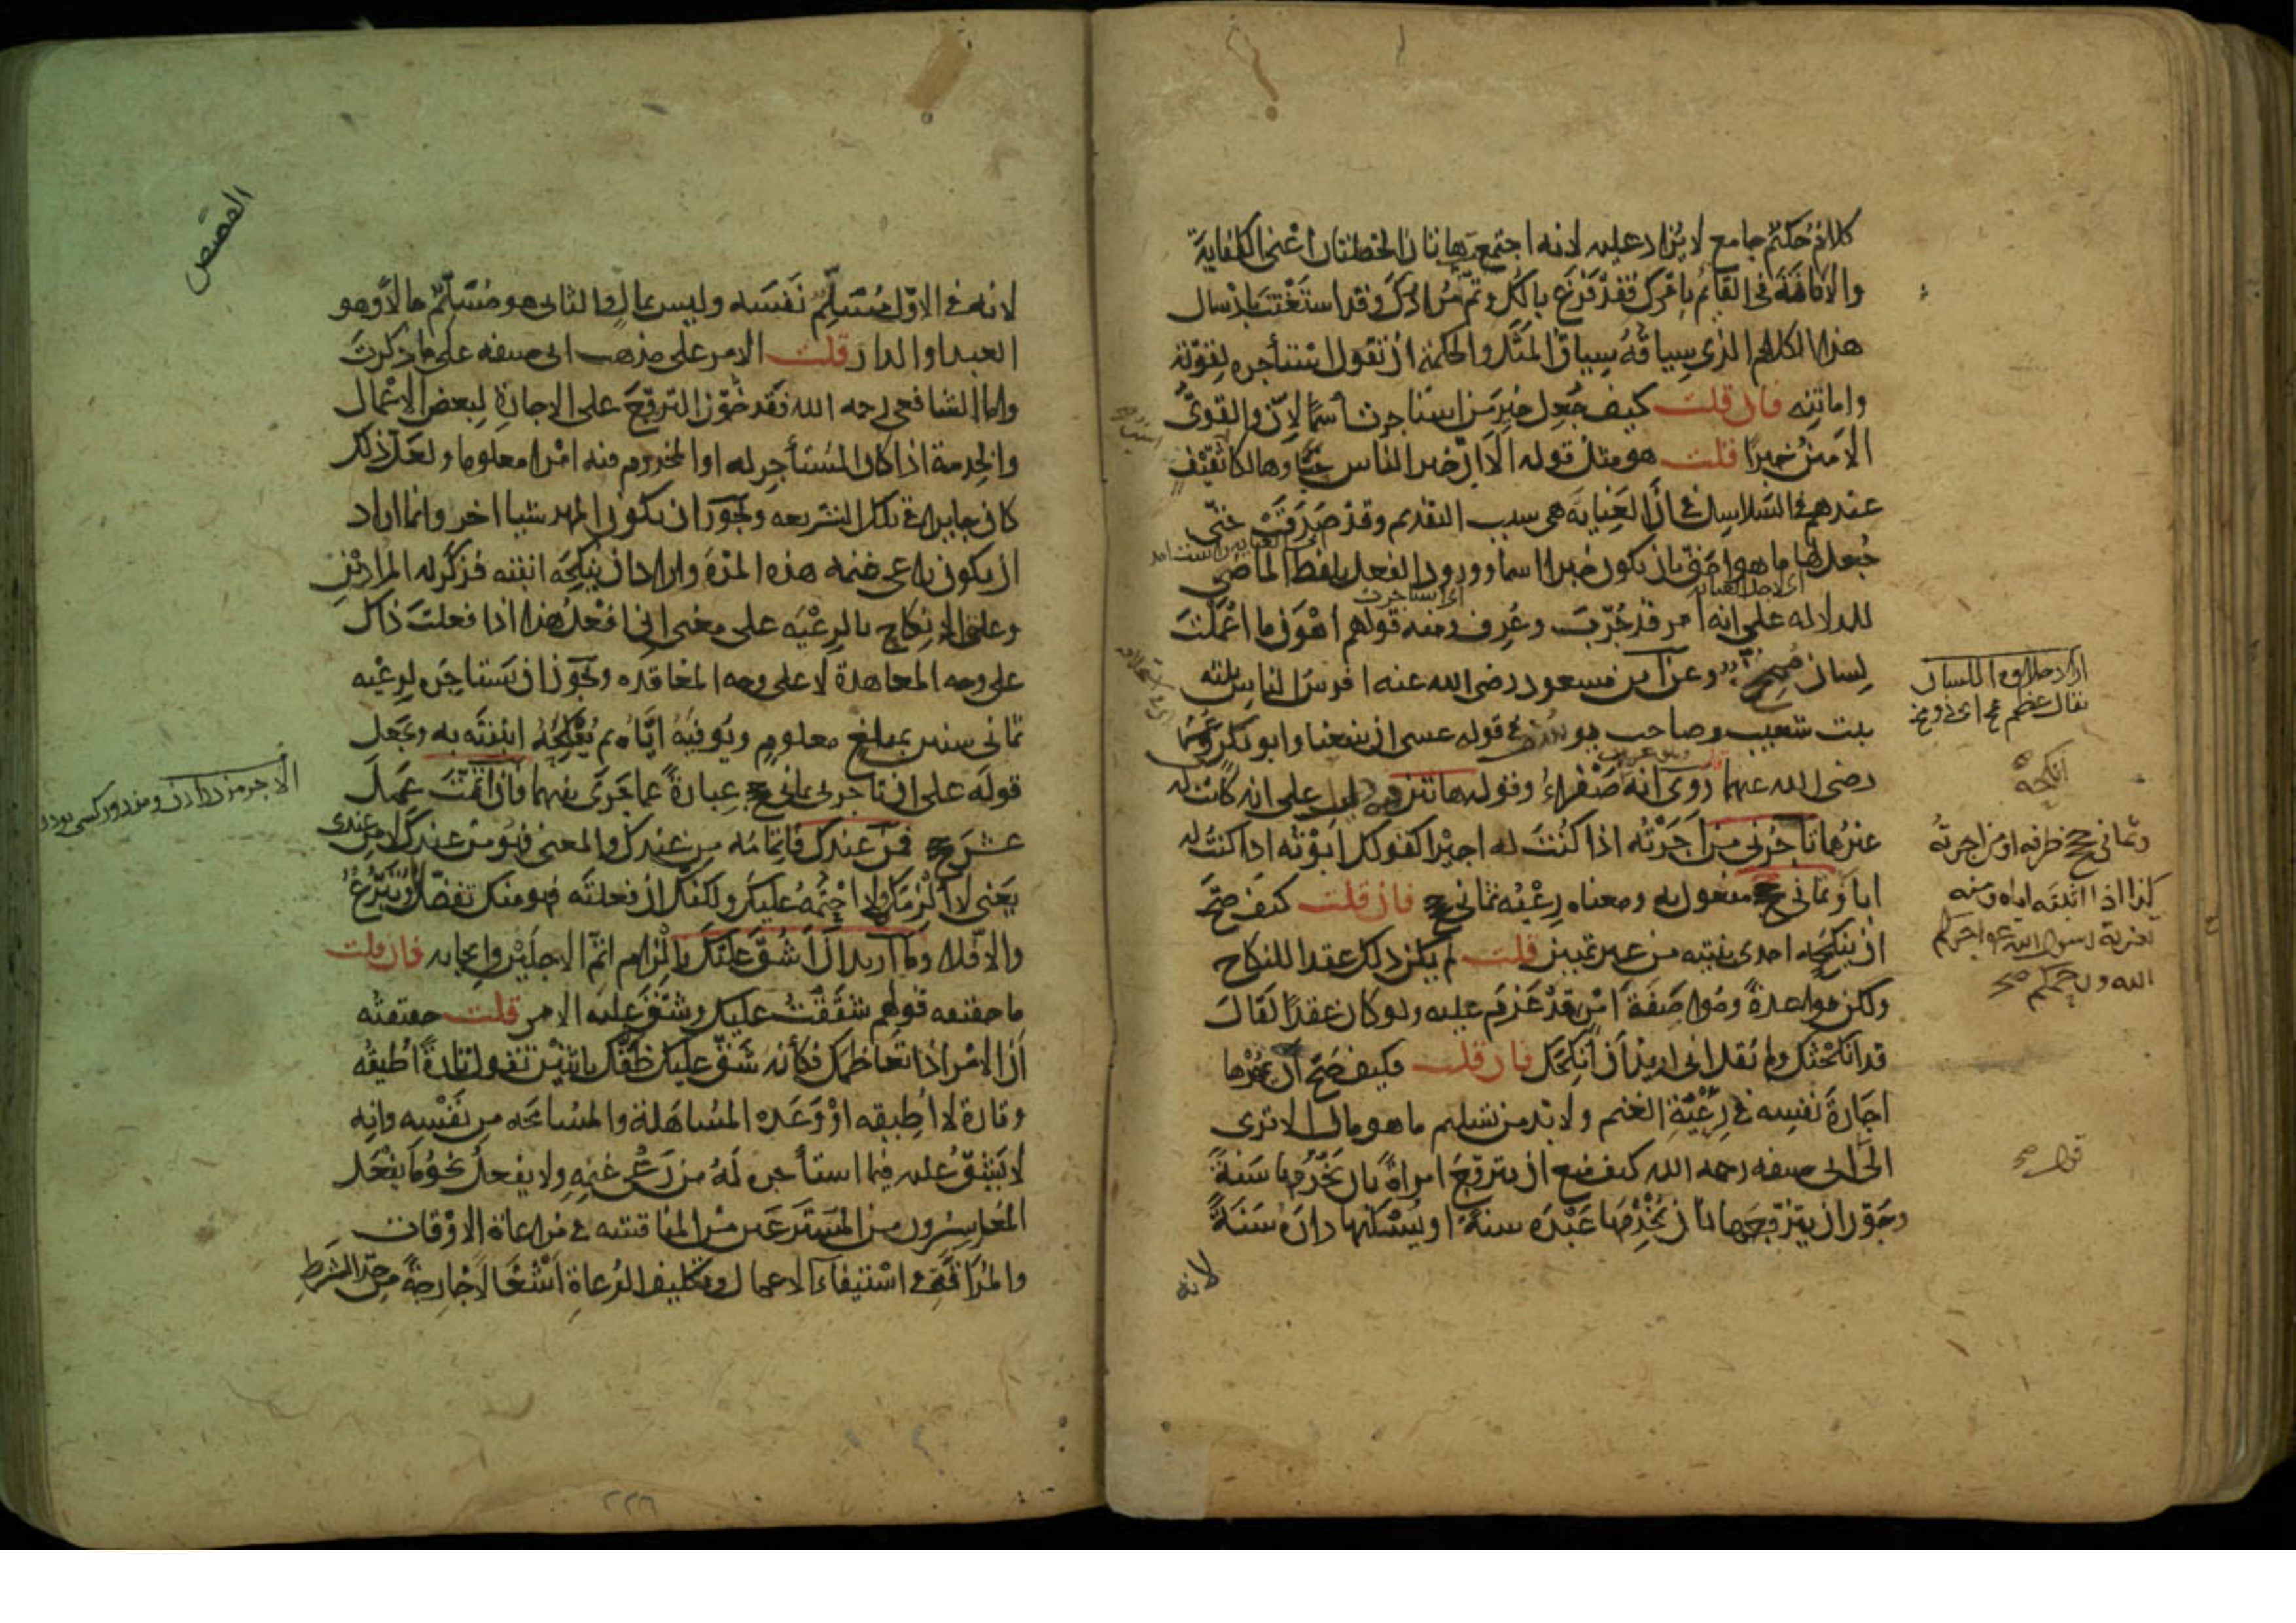 كلام حكيم جامع لا يزاد عليه لانه اذا اجتمعت هاتان الخصلتان اعنى الكفاية
والامانة فى القائم بامرك فقد فرغ بالك وتم مرادك وقد استغنت بارسال
هذا الكلام الذى سياقه سياق المثل والحكمة ان تقول استأجره لقوته
وامانته فان قلت كيف جعل خير من استاجرت اسما لان والقوى
الامين خبرا قلت هو مثل قوله الا ان خير الناس حيا وهالكا ثقيف
عندهم فى السلاسل فى ان العناية هى سبب التقديم وقد صدقت حتى
جعل لها ما هو احق بان يكون خبرا اسما وورود الفعل بلفظ الماضى
للدلاله على انه امر قد جرب وعرف ومنه قولهم اهون ما اعملت
لسان ممخ وعن ابن مسعود رضى الله عنه افرس الناس ثلثه
بنت شعيب وصاحب يوسف فى قوله عسى ان ينفعنا وابو بكر فى عمر
رضى الله عنهما روى انه صفراء وقوله هاتين فيه دليل على انه كانت له
غيرهما تاجرنى من اجرته اذا كنت له اجيرا كقولك ابوته اذا كنت له
ابا وثمانى حجج مفعول به ومعناه رعية ثمانى حجج فان قلت كيف صح
ان ينكحه احدى ابنتيه من غير تمييز قلت لم يكن ذلك عقدا للنكاح
ولكن مواعدة ومواصفة امر قد عزم عليه ولو كان عقدا لقال
قد انكحتك ولم يقل انى اريد ان انكحك فان قلت فكيف صح ان يمهرها
اجارة نفسه فى رعية الغنم ولا بد من تسليم ما هو مال الا ترى
الى ابى حنيفه رحمه الله كيف منع ان يتزوج امراة بان يخدمها سنة
وجوز ان يتزوجها بان يخدمها عبده سنة او يسكنها داره سنة
لانه
انكحه
وثمانى حجج ظرفه او من اجرته
كذا اذا اثبته اياه ومنه
تعزية رسول الله اجركم
الله ورحمكم صح
القصص
لانه فى الاول مسلم نفسه وليس بمال وفى الثانى هو مسلم مالا وهو
العبد او الدار قلت الامر على مذهب ابى حنيفه على ما ذكرت
واما الشافعى رحمه الله فقد جوز التزوج على الاجارة لبعض الاعمال
والخدمة اذا كان المستأجر له او المخدوم فيه امرا معلوما ولعل ذلك
كان جايزا فى تلك الشريعه ويجوز ان يكون المهر شيا اخر وانما اراد
ان يكون راعى غنمه هذه المدة واراد ان ينكحه ابنته فذكر له المرادين
وعلق الانكاح بالرعيه على معنى انى افعل هذا اذا فعلت ذاك
على وجه المعاهدة لا على وجه المعاقده ويجوز ان يستاجره لرعيه
ثمانى سنين بمبلغ معلوم ويوفيه اياه ثم ينكحه ابنته به ويجعل
قوله على ان تاجرنى ثمانى حجج عبارة عما جرى بينهما فان اتممت عمل
عشر حجج فمن عندك فاتمامه من عندك والمعنى فهو من عندك لا من عندى
يعنى لا الزمكه ولا احتمه عليك ولكنك ان فعلته فهو منك تفضل وتبرع
والا فلا وما اريد ان اشق عليك بالزام اتم الاجلين وايجابه فان قلت
ما حقيقه قولهم شققت عليك وشق عليه الامر قلت حقيقته
ان الامر اذا تعاظمك فكأنه شق عليك ظنك باثنين تقول تارة اطيقه
وتارة لا اطيقه او وعده المساهلة والمسامحه من نفسه وانه
لا يشق عليه فيما استأجره له من رعى غنمه ولا يفعل نحو ما يفعل
المعاسرون من المسترعين من المناقشه فى مراعاة الاوقات
والمداقة فى استيفاء الاعمال وتكليف الرعاة اشغالا خارجة من حد الشرط
الاجر مزد دادن ومزدور كسى بودن
٢٢٦